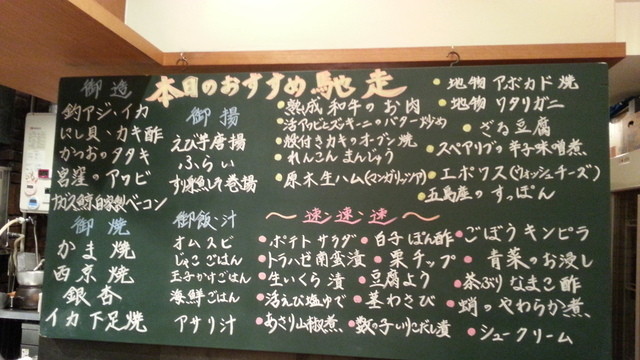 本日のおすすめ馳走
御造
釣アジ・イカ
にし貝、カキ酢
かつおのタタキ
宮窪のアワビ
ナガス鯨自家製ベーコン
御焼
かま焼
西京焼
銀杏
イカ下足焼
御揚
えび芋唐揚
ふらい
すり身魚しそ巻揚
御飯/汁
オムスビ
じゃこごはん
玉子かけごはん
海鮮ごはん
アサリ汁
熟成和牛のお肉
活アワビとズッキーニのバター炒め
殻付きカキのオーブン焼
れんこんまんじゅう
原木生ハム(マンガリッツァ)
地物アボカド焼
地物ワタリガニ
ざる豆腐
スペアリブの辛子味噌煮
エポワス(ウォッシュチーズ)
五島産のすっぽん
〜速・速・速〜
ポテトサラダ
トラハゼ南蛮漬
生いくら漬
活えび塩ゆで
あさり山椒煮
白子ぽん酢
栗チップ
豆腐よう
茎わさび
数の子いりこだし漬
ごぼうキンピラ
青菜のお浸し
茶ぶりなまこ酢
蛸のやわらか煮
シュークリーム